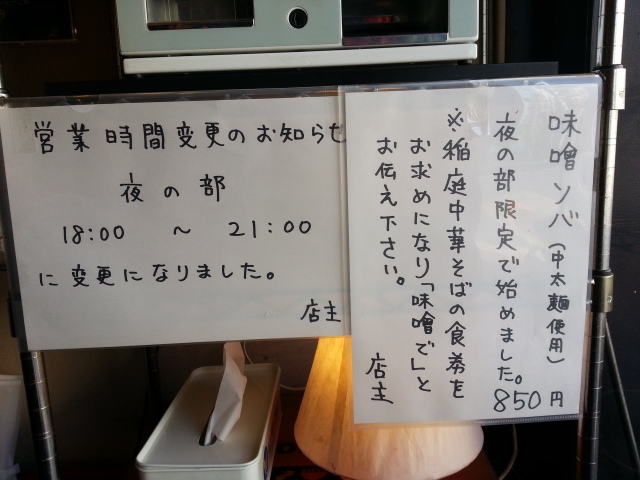 営業時間変更のお知らせ
夜の部
18:00 ～ 21:00
に変更になりました。
店主
味噌ソバ（中太麺使用）
夜の部限定で始めました。
850円
※稲庭中華そばの食券を
お求めになり「味噌で」と
お伝え下さい。
店主